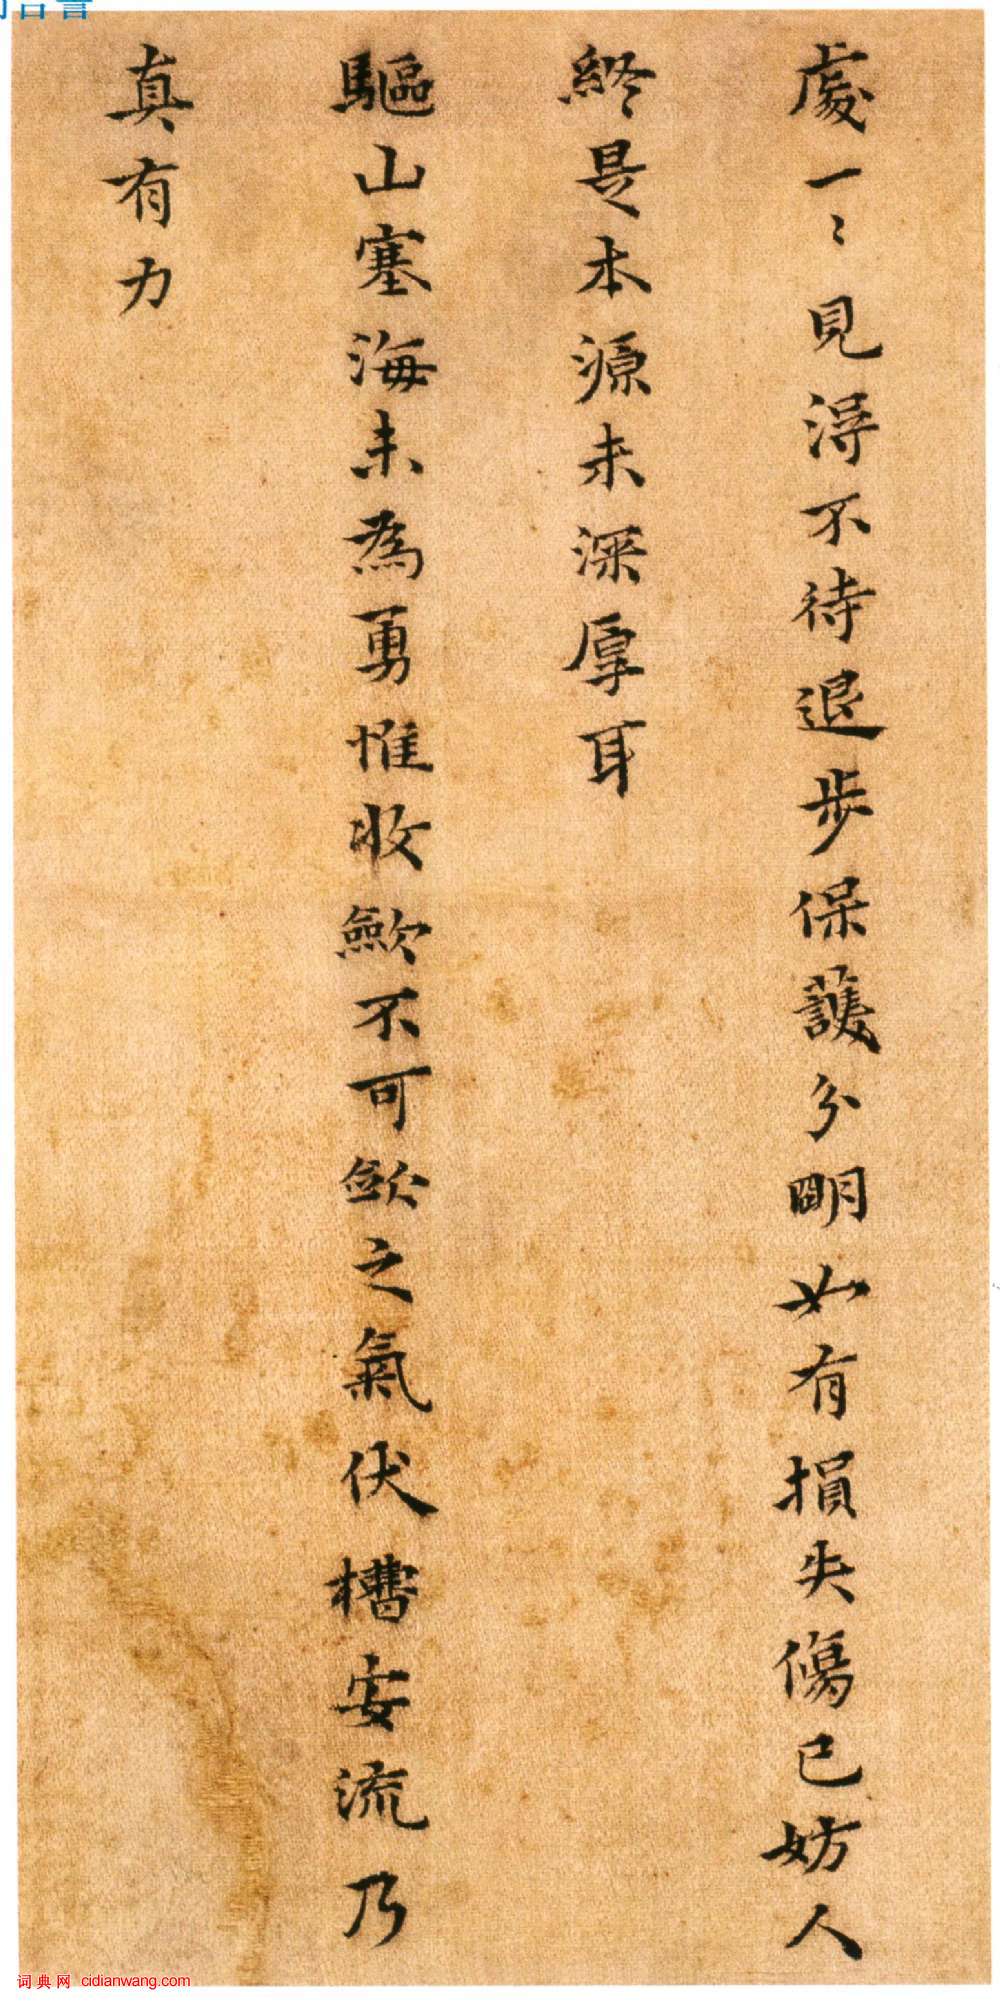 處一〻見得不待退步保護分明如有損失傷已妨人
終是本源未深厚耳
驅山塞海未為勇惟收歛不可歛之氣伏槽安流乃
真有力
词典网 cidianwang.com